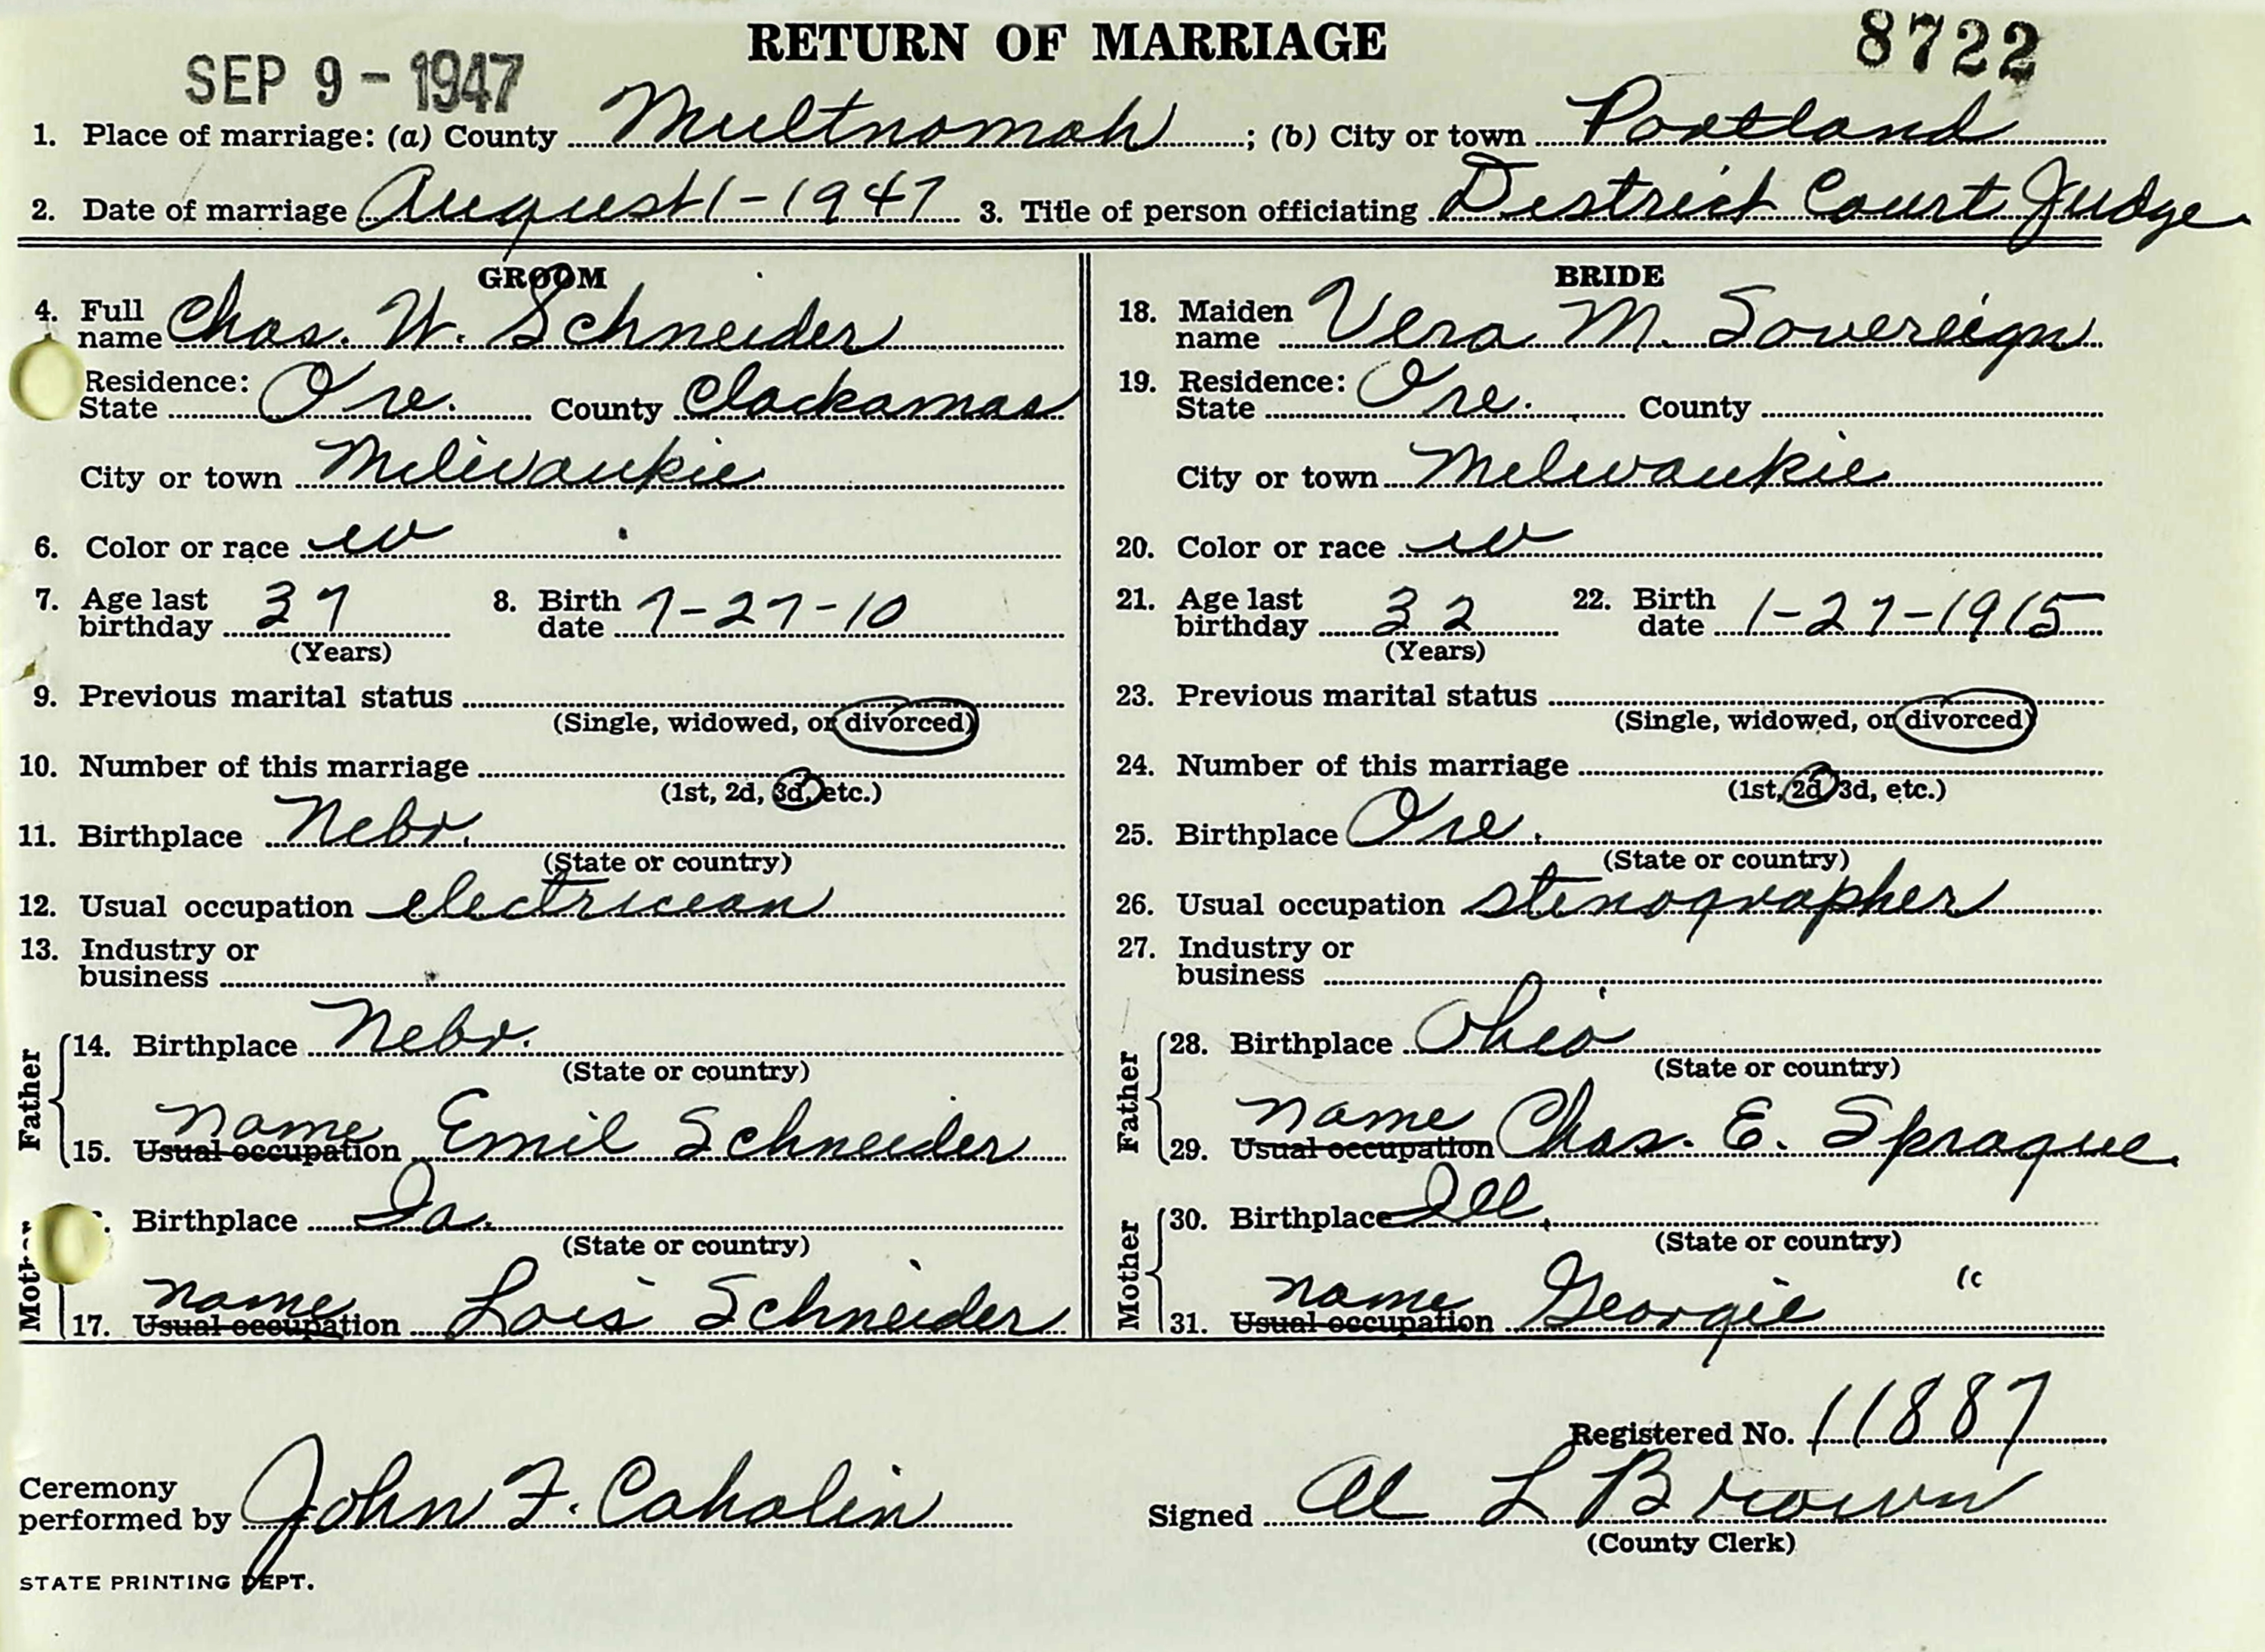 RETURN OF MARRIAGE
8722
SEP 9 - 1947
1. Place of marriage: (a) County Multnomah ; (b) City or town Portland
2. Date of marriage August 1 - 1947 3. Title of person officiating District Court Judge
GROOM
4. Full name Chas. W. Schneider
Residence: State Ore. County Clackamas
City or town Milwaukie
6. Color or race w
7. Age last birthday 37 8. Birth date 7-27-10
(Years)
9. Previous marital status
(Single, widowed, or divorced)
10. Number of this marriage
(1st, 2d, 3d, etc.)
11. Birthplace Nebr.
(State or country)
12. Usual occupation electrician
13. Industry or business
Father
14. Birthplace Nebr.
(State or country)
name
15. Usual occupation Emil Schneider
Mother
Birthplace Ia.
(State or country)
name
17. Usual occupation Lois Schneider
BRIDE
18. Maiden name Vera M. Sovereign
19. Residence: State Ore. County
City or town Milwaukie
20. Color or race w
21. Age last birthday 32 22. Birth date 1-27-1915
(Years)
23. Previous marital status
(Single, widowed, or divorced)
24. Number of this marriage
(1st, 2d, 3d, etc.)
25. Birthplace Ore.
(State or country)
26. Usual occupation stenographer
27. Industry or business
Father
28. Birthplace Ohio
(State or country)
name
29. Usual occupation Chas. E. Sprague
Mother
30. Birthplace Ill.
(State or country)
name
31. Usual occupation Georgie "
Registered No. 11887
Ceremony performed by John F. Cahalin
Signed Al L Brown
(County Clerk)
STATE PRINTING DEPT.